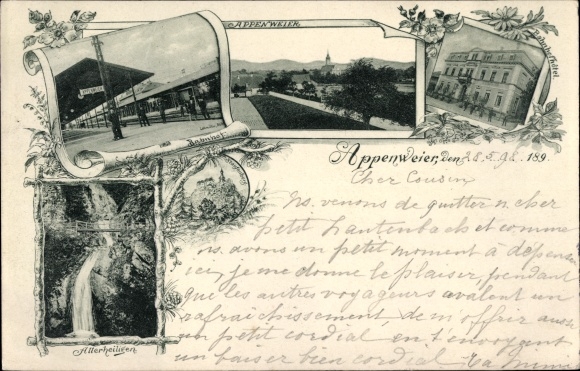 APPENWEIER
Bahnhofhotel
Bahnhof
Appenweier, den 28.5.98. 189.
Cher Cousin
Ns. venons de quitter n. cher
petit Lautenbach et comme
ns. avons un petit moment à dépenser
ici, je me donne le plaisir, pendant
que les autres voyageurs avalent un
rafraîchissement, de m'offrir aussi
un petit cordial en t'envoyant
un baiser bien cordial. Ta
Allerheiligen